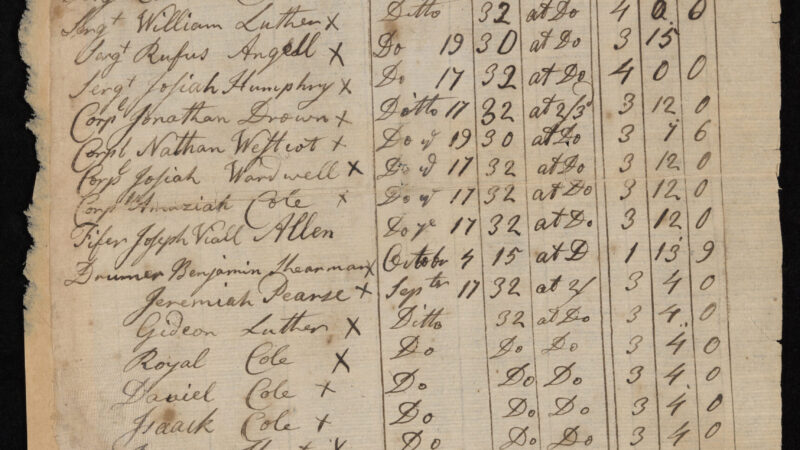 Sergt William Luther x Ditto 32 at Do 4 0 0
Sergt Rufus Angell x Do 19 30 at Do 3 15
Sergt Josiah Humphry x Do 17 32 at Do 4 0 0
Corpl Jonathan Drown x Ditto 17 32 at 2/3 3 12 0
Corpl Nathan Westcot x Do 19 30 at Do 3 7 6
Corpl Josiah Wardwell x Do 17 32 at Do 3 12 0
Corpl Amaziah Cole x Do 17 32 at Do 3 12 0
Fifer Joseph Viall Allen Do ye 17 32 at Do 3 12 0
Drumer Benjamin Shearman x October 4 15 at D 1 13 9
Jeremiah Pearse x Septr 17 32 at 2/ 3 4 0
Gideon Luther x Ditto 32 at Do 3 4 0
Royal Cole x Do Do Do 3 4 0
Daniel Cole x Do Do Do 3 4 0
Isaack Cole x Do Do Do 3 4 0
x Do Do Do 3 4 0